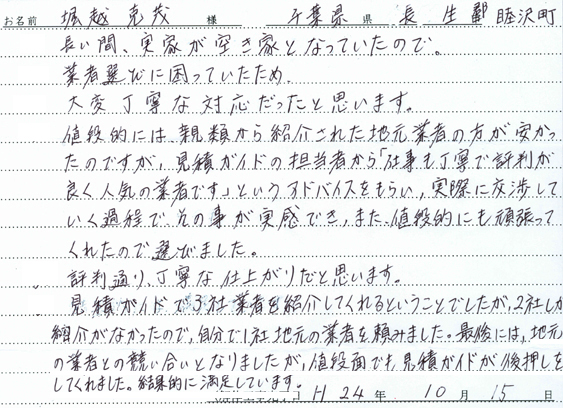 お名前 堀越 克茂 様 千葉県 県 長生郡 睦沢町
長い間、実家が空き家となっていたので。
業者選びに困っていたため.
大変丁寧な対応だったと思います。
値段的には、親類から紹介された地元業者の方が安かっ
たのですが、見積ガイドの担当者から「仕事も丁寧で評判が
良く人気の業者です」というアドバイスをもらい、実際に交渉して
いく過程で、その事が実感でき、また、値段的にも頑張って
くれたので選びました。
評判通り、丁寧な仕上がりだと思います。
見積ガイドで3社業者を紹介してくれるということでしたが、2社しか
紹介がなかったので、自分で1社地元の業者を頼みました。最後には、地元
の業者との競い合いとなりましたが、値段面でも見積ガイドが後押しを
してくれました。結果的に満足しています。
H 24 年 10 月 15 日